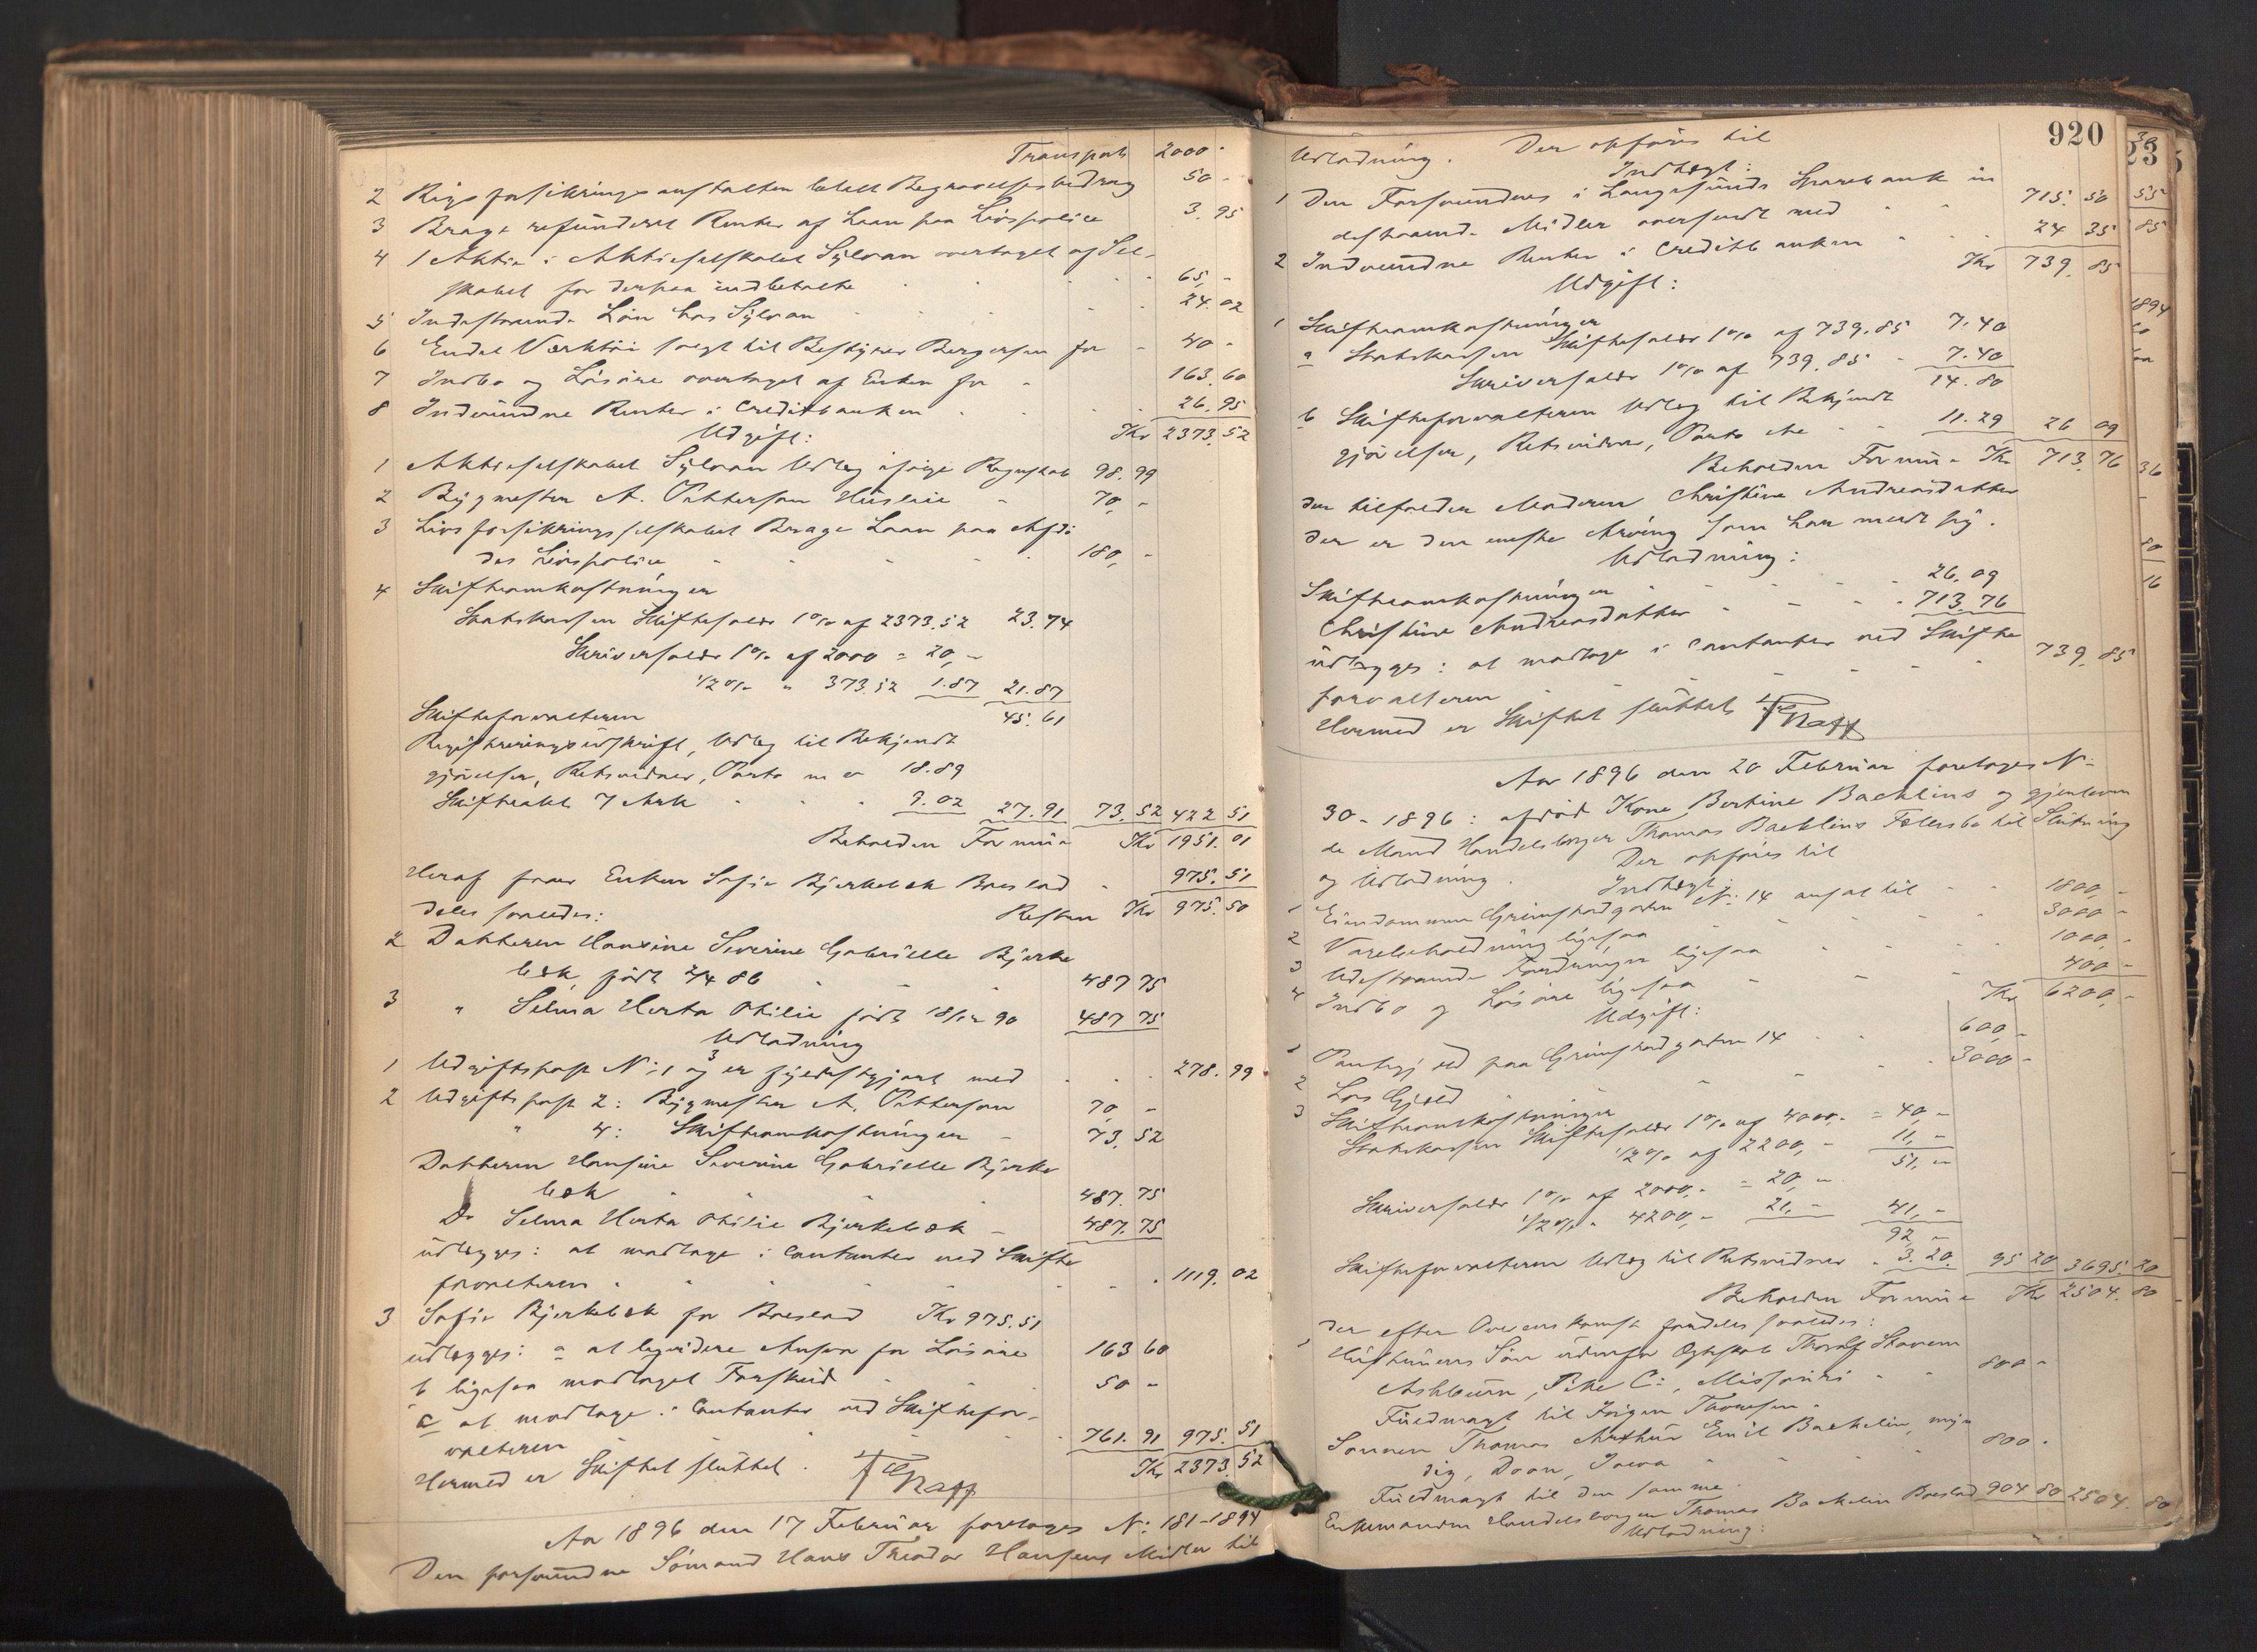 Transport 2000 -
2 Rigsforsikringsanstalten betalt Begravelsesbidrag 50 -
3 Brage refunderet Renter af Laan paa Livspolice 3.95
4 1 Aktie i Aktieselskabet Sylvan overtaget af Sel-
skabet for derpaa indbetalte 65,-
5 Indestaaende Løn hos Sylvan 24.02
6 Endel Værktøi solgt til Bestyrer Bergersen for 40 -
7 Indbo og Løsøre overtaget af Enken for 163.60
8 Indvundne Renter i Creditbanken 26.95
Udgift: Kr 2373.52
1 Aktieselskabet Sylvan Udlæg ifølge Regnskab 98.99
2 Bygmester A. Pettersen Husleie 70,-
3 Livsforsikringsselskabet Brage Laan paa Afdø
des Livspolice 180,-
4 Skifteomkostninger
Statskassen Skiftesalær 1% af 2373.52 23.74
Skriversalær 1% af 2000 = 20,-
1/2% " 373.52 1.87 21.87
Skifteforvalteren 45.61
Registreringsudskrift, Udlæg til Bekjendt
gjørelser, Retsvidner, Porto m v 18.89
Skifteakt 7 Ark 9.02 27.91 73.52 422 51
Beholden Formue Kr 1951.01
Heraf faaer Enken Sofie Bjerkebæk Boeslod 975.51
deles saaledes: Resten Kr 975.50
2 Datteren Hansine Severine Gabrielle Bjerke
bæk, født 2/4 86 487 75
3 " Selma Herta Otilie født 18/12 90 487 75
Udlodning
1 Udgiftspost No 1 og 3 er fyldestgjort med 278.99
2 Udgiftspost 2: Bygmester A. Pettersen 70,-
" 4: Skifteomkostninger 73.52
Datteren Hansine Severine Gabrielle Bjerke
bæk 487.75
Do Selma Herta Otilie Bjerkebæk 487.75
udlægges: at modtage i Contanter ved Skifte
forvalteren 1119.02
3 Sofie Bjerkebæk for Boeslod Kr 975.51
udlægges: a at liqvidere Ansvar for Løsøre 163 60
b ligesaa modtaget Forskud 50 -
c at modtage i Contanter ved Skiftefor-
valteren 761.91 975.51
Hermed er Skiftet sluttet. Kr 2373.52
Aar 1896 den 17 Februar foretoges No 181-1894
Den forsvundne Sømand Hans Theodor Hansens Midler til
920
Udlodning. Der opføres til
Indtægt:
1 Den Forsvundnes i Langesunds Sparebank in
destaaende Midler oversendt med 715.50
2 Indvundne Renter i Creditbanken 24 35
Udgift: Kr 739.85
1 Skifteomkostninger
a Statskassen Skiftesalær 1% af 739.85 7.40
Skriversalær 1% af 739.85 7.40
14.80
b Skifteforvalteren Udlæg til Bekjendt
gjørelser, Retsvidner, Porto etc 11.29 26 09
Beholden Formue Kr 713.76
der tilfalder Moderen Christine Andreasdatter
der er den eneste Arving som har meldt sig.
Udlodning:
Skifteomkostninger 26.09
Christine Andreasdatter 713.76
udlægges: at modtage i Contanter ved Skifte
forvalteren 739.85
Hermed er Skiftet sluttet
Aar 1896 den 20 Februar foretoges No
30-1896: afdøde Kone Bertine Backlins og gjenleven
de Mand Handelsborger Thomas Backlins Fællesbo til Slutning
og Udlodning. Der opføres til
Indtægt:
1 Eiendommen Grimstadgaden No 14 ansat til 1800,-
2 Varebeholdning ligesaa 3000 -
3 Udestaaende Fordringer ligesaa 1000,-
4 Indbo og Løsøre ligesaa 400,-
Udgift: Kr 6200,-
1 Pantegjæld paa Grimstadgaden 14 600,-
2 Løs Gjæld 3000 -
3 Skifteomkostninger
Statskassen Skiftesalær 1% af 4000,- = 40,-
1/2% af 2200,- 11,-
51,-
Skriversalær 1% af 2000,- = 20,-
1/2% " 4200,- 21,- 41,-
92,-
Skifteforvalteren Udlæg til Retsvidner 3.20 95 20 3695.20
Beholden Formue Kr 2504.80
der efter Overenskomst fordeles saaledes:
1 Hustruens Søn udenfor Ægteskab Thoralf Stavem
Ashburn, Pike Co, Missouri 800 -
Fuldmagt til Jørgen Thomsen.
Sønnen Thomas Arthur Emil Backelin, myn
dig, Doon, Iowa 800 -
Fuldmagt til den samme.
Enkemanden Handelsborger Thomas Backelin Boeslod 904 80 2504.80
Udlodning: